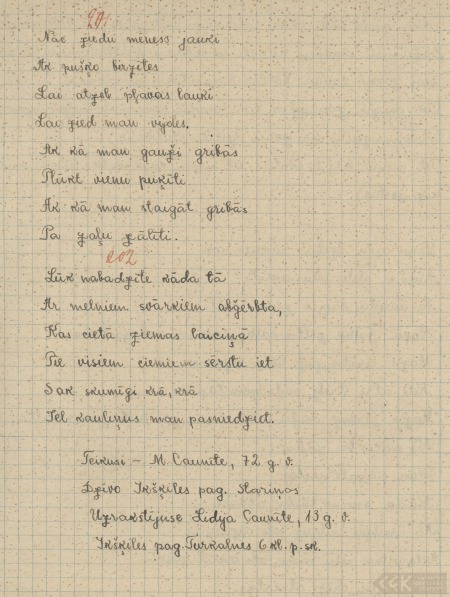 201
Nāc ziedu mēness jauki
Ak puško birzītes
Lai atzeļ pļavas lauki
Lai zied man vijoles.
Ak kā man gauži gribās
Plūkt vienu puķīti
Ak kā man staigāt gribās
Pa zaļu zālīti.
202
Lūk nabadzīte kāda tā
Ar melniem svārkiem apģērbta,
Kas cietā ziemas laiciņā
Pie visiem ciemiem sērstu iet
Sak skumīgi krā, krā
Tel kauliņus man pasniedziet.
Teikusi – M. Caunīte, 72 g. v.
Dzīvo Ikšķiles pag. Stariņos
Uzrakstījuse Lidija Caunīte, 13 g. v.
Ikšķiles pag. Turkalnes 6 kl. p. sk.